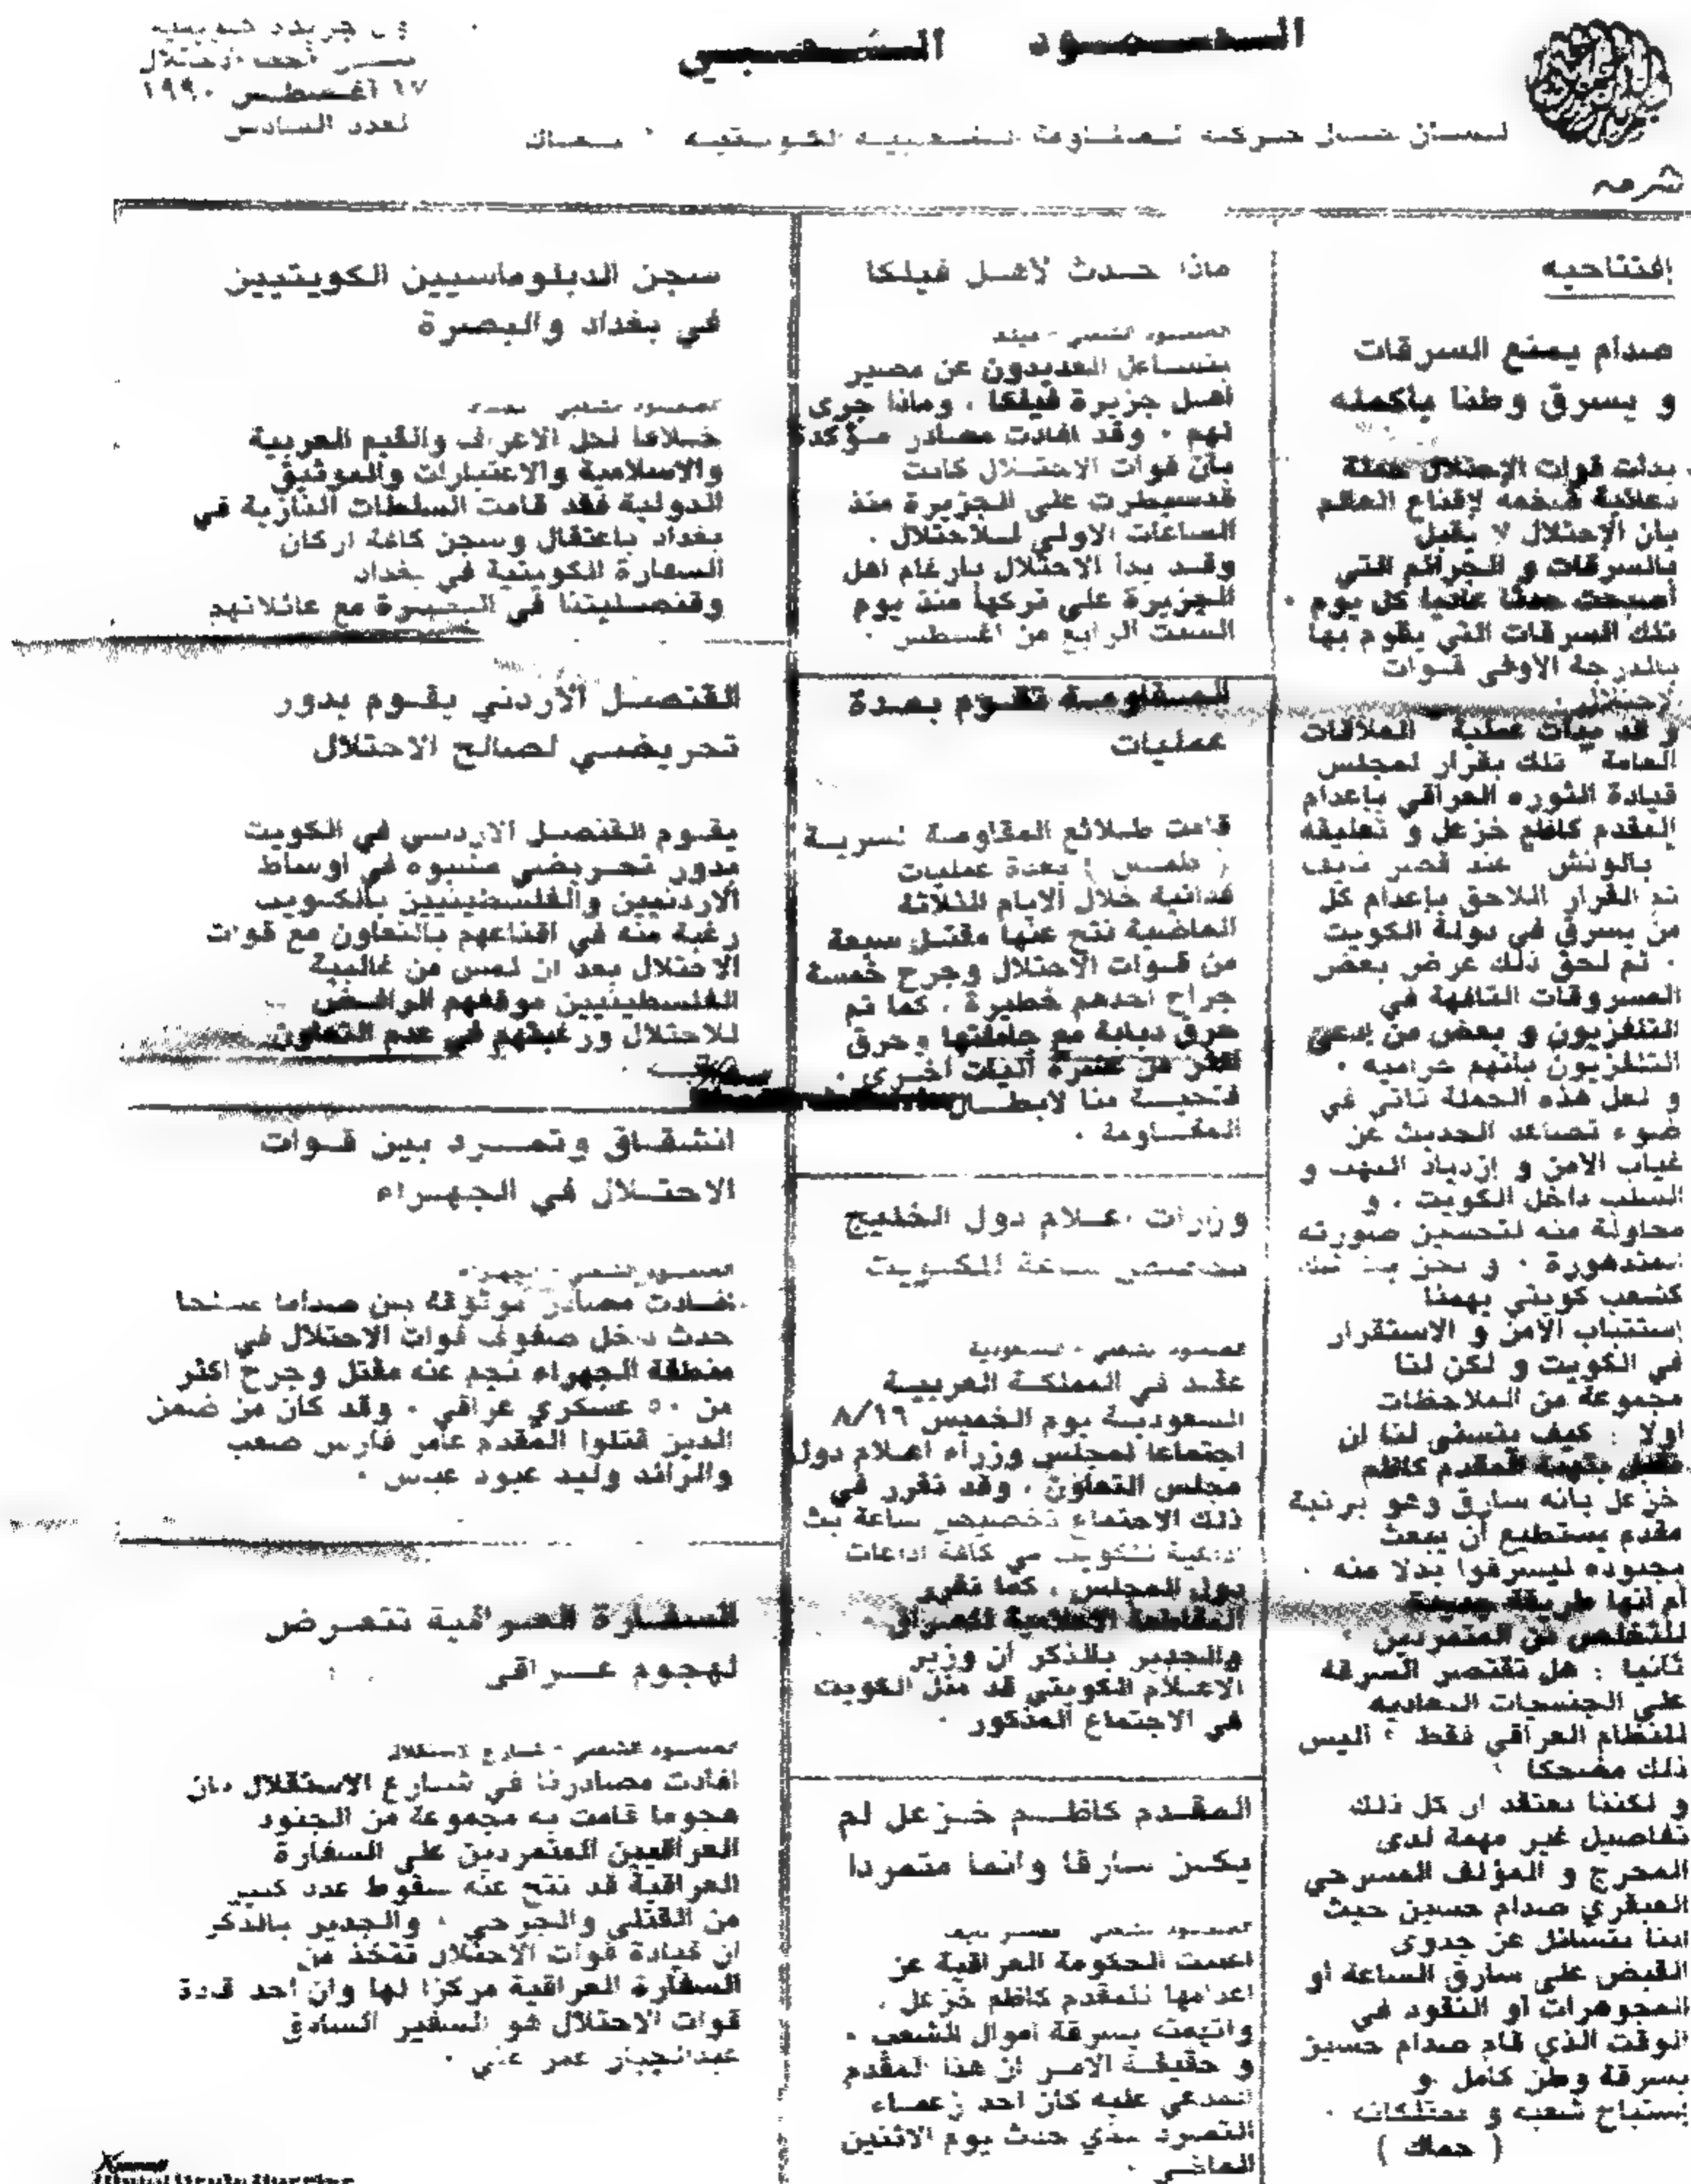 الصمود الشعبي
لسان حال حركة المقاومة الشعبية الكويتية " حماك
أول جريدة كويتية
تحت الاحتلال
١٧ أغسطس ١٩٩٠
العدد السادس
إفتتاحيه
صدام يمنع السرقات
و يسرق وطنا بأكمله
بدأت قوات الإحتلال حملة
دعائية ضخمه لإقناع العالم
بأن الإحتلال لا يقبل
بالسرقات و الجرائم التي
أصبحت حدثا عاديا كل يوم .
تلك السرقات التي يقوم بها
بالدرجة الأولى قوات
الإحتلال .
و قد بدأت عملية " العلاقات
العامة " تلك بقرار لمجلس
قيادة الثوره العراقي بإعدام
المقدم كاظم خزعل و تعليقه
" بالونش " عند قصر نايف
ثم القرار اللاحق بإعدام كل
من يسرق في دولة الكويت
. ثم لحق ذلك عرض بعض
المسروقات التافهة في
التلفزيون و بعض من إدعى
التلفزيون بأنهم حراميه .
و لعل هذه الحملة تأتي في
ضوء تصاعد الحديث عن
غياب الأمن و إزدياد النهب و
السلب داخل الكويت ، و
محاولة منه لتحسين صورته
المتدهورة . و نحن
كشعب كويتي يهمنا
إستتباب الأمن و الاستقرار
في الكويت و لكن لنا
مجموعة من الملاحظات
أولا : كيف يتسنى لنا ان
نقبل بتهمة المقدم كاظم
خزعل بأنه سارق وهو برتبة
مقدم يستطيع أن يبعث
بجنوده ليسرقوا بدلا منه .
أم أنها طريقة جديدة
للتخلص من المتمردين .
ثانيا : هل تقتصر السرقه
على الجنسيات المعاديه
للنظام العراقي فقط ؟ أليس
ذلك مضحكا ؟
و لكننا نعتقد ان كل ذلك
تفاصيل غير مهمة لدى
المخرج و المؤلف المسرحي
العبقري صدام حسين حيث
اننا نتسائل عن جدوى
القبض على سارق الساعة أو
المجوهرات أو النقود في
الوقت الذي قام صدام حسين
بسرقة وطن كامل و
يستباح شعبه و ممتلكاته .
( حماك )
ماذا حدث لأهل فيلكا
الصمود الشعبي -
يتساءل العديدون عن مصير
أهل جزيرة فيلكا ، وماذا جرى
لهم . وقد افادت مصادر مؤكدة
بأن قوات الاحتلال كانت
قدسيطرت على الجزيرة منذ
الساعات الاولى للاحتلال .
وقد بدأ الاحتلال بارغام اهل
الجزيرة على تركها منذ يوم
السبت الرابع من اغسطس .
المقاومة تقوم بعدة
عمليات
قامت طلائع المقاومة لسرية
بعدة عمليات
فدائية خلال الايام الثلاثة
الماضية نتج عنها مقتل سبعة
من قوات الاحتلال وجرح خمسة
جراح احدهم خطيرة ، كما تم
حرق دبابة مع حاملتها وحرق
اكثر من عشرة آليات أخرى .
فتحية منا لابطال
المقاومة .
وزارات اعلام دول الخليج
تخصص ساعة للكويت
الصمود الشعبي - السعودية
عقد في المملكة العربية
السعودية يوم الخميس ٨/١٦
اجتماعا لمجلس وزراء اعلام دول
مجلس التعاون ، وقد تقرر في
ذلك الاجتماع تخصيص ساعة بث
اذاعية للكويت من كافة اذاعات
دول المجلس ، كما تقرر
المقاطعة الاعلامية للعراق .
والجدير بالذكر أن وزير
الاعلام الكويتي قد مثل الكويت
في الاجتماع المذكور .
المقدم كاظم خزعل لم
يكن سارقا وانما متمردا
الصمود الشعبي - قصر نايف
اعلنت الحكومة العراقية عن
اعدامها للمقدم كاظم خزعل ،
واتهمته بسرقة اموال الشعب .
و حقيقة الامر ان هذا المقدم
المدعي عليه كان احد زعماء
التمرد الذي حدث يوم الاثنين
الماضي .
سجن الدبلوماسيين الكويتيين
في بغداد والبصرة
الصمود الشعبي - بغداد
خلافا لكل الاعراف والقيم العربية
والاسلامية والاعتبارات والمواثيق
الدولية فقد قامت السلطات النازية في
بغداد باعتقال وسجن كافة اركان
السفارة الكويتية في بغداد
وقنصليتنا في البصرة مع عائلاتهم
القنصل الأردني يقوم بدور
تحريضي لصالح الاحتلال
يقوم القنصل الاردني في الكويت
بدور تحريضي مشبوه في اوساط
الاردنيين والفلسطينيين بالكويت
رغبة منه في اقناعهم بالتعاون مع قوات
الاحتلال بعد ان لمس من غالبية
الفلسطينيين موقفهم الرافض
للاحتلال ورغبتهم في عدم التعاون
معه .
انشقاق وتمرد بين قوات
الاحتلال في الجهراء
الصمود الشعبي - الجهراء
افادت مصادر موثوقة بان صداما مسلحا
حدث داخل صفوف قوات الاحتلال في
منطقة الجهراء نجم عنه مقتل وجرح اكثر
من ٥٠ عسكري عراقي . وقد كان من ضمن
الذين قتلوا المقدم عامر فارس صعب
والرائد وليد عبود عباس .
السفارة العراقية تتعرض
لهجوم عراقي
الصمود الشعبي - شارع الاستقلال
افادت مصادرنا في شارع الاستقلال بان
هجوما قامت به مجموعة من الجنود
العراقيين المتمردين على السفارة
العراقية قد نتج عنه سقوط عدد كبير
من القتلى والجرحى . والجدير بالذكر
ان قيادة قوات الاحتلال تتخذ من
السفارة العراقية مركزا لها وان احد قادة
قوات الاحتلال هو السفير السابق
عبدالجبار عمر غني .